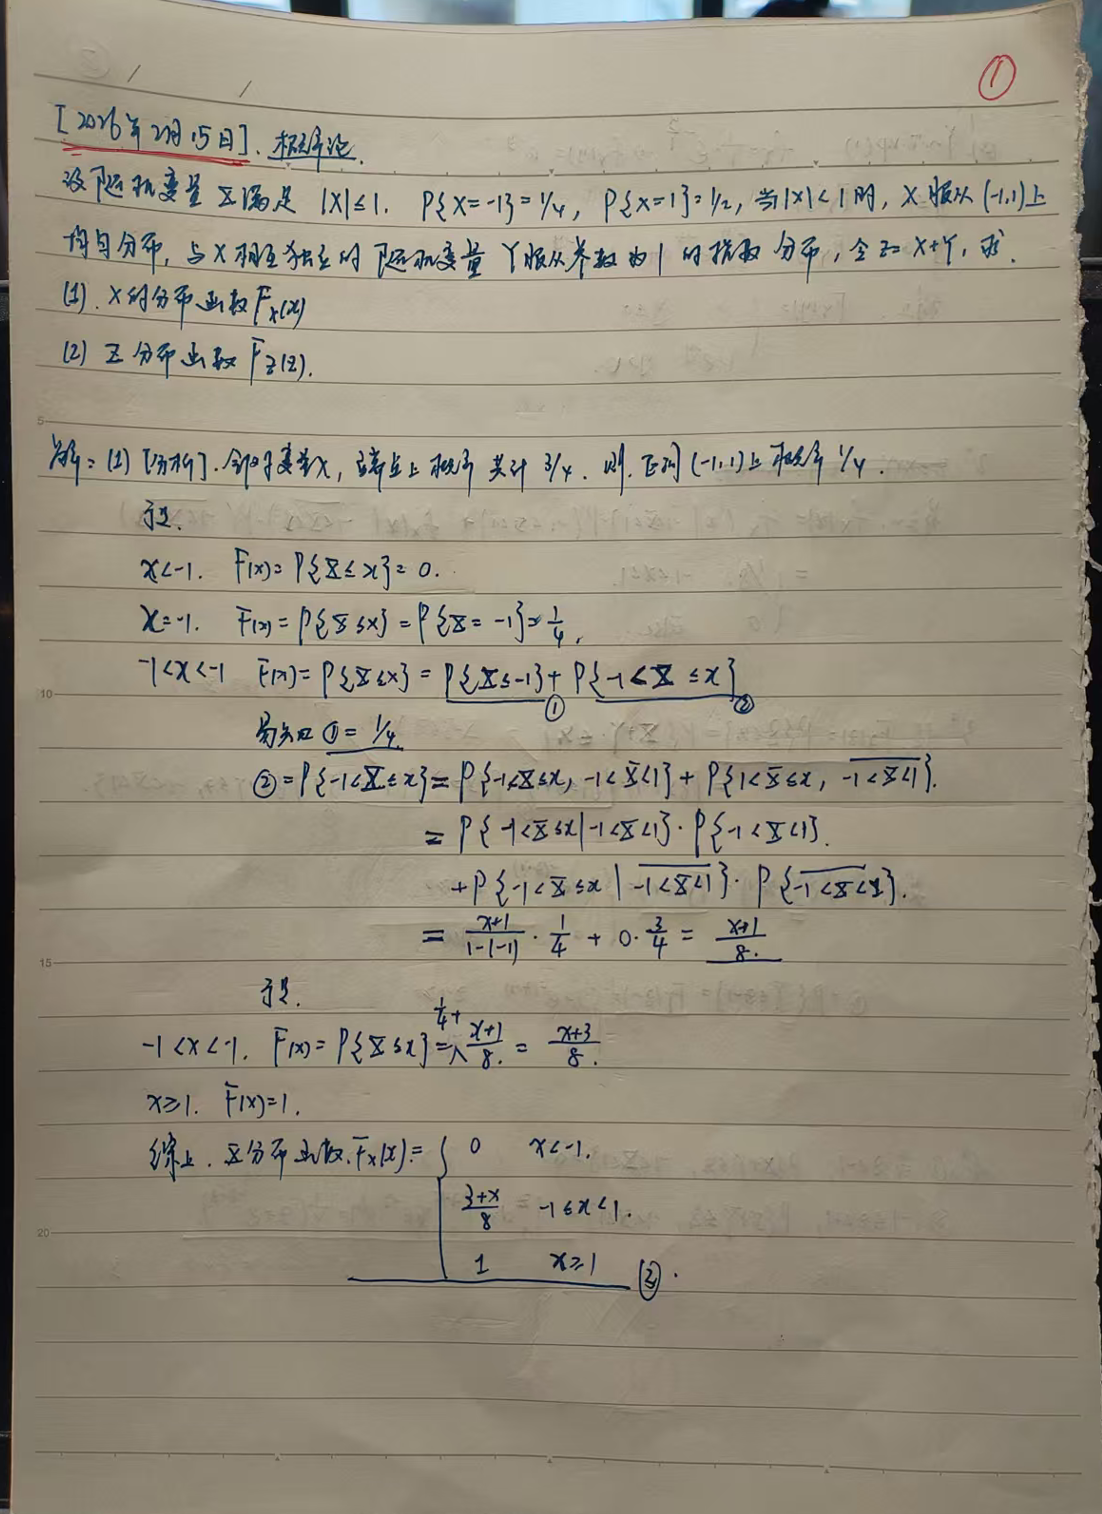 ①
[2026年2月15日]. 概率论.
设随机变量X满足 |X|≤1. P{X=-1}=1/4, P{X=1}=1/2, 当|X|<1时, X服从(-1,1)上
均匀分布, 与X相互独立的随机变量Y服从参数为1的指数分布, 令Z=X+Y, 求.
(1). X的分布函数F_X(x)
(2) Z分布函数F_Z(z).
5
解: (1) [分析]. 全时变量X, 端点上概率共计3/4. 则. 区间(-1,1)上概率1/4.
于是.
x<-1. F(x)=P{X≤x}=0.
x=-1. F(x)=P{X≤x}=P{X=-1}=1/4,
-1<x<-1 F(x)=P{X≤x}=P{X≤-1}+P{-1<X≤x}
10 ① ②
易知 ①=1/4
②=P{-1<X≤x}=P{-1<X≤x, -1<X<1}+P{1<X≤x, \overline{-1<X<1}}.
=P{-1<X≤x|-1<X<1}·P{-1<X<1}.
+P{-1<X≤x|\overline{-1<X<1}}·P{\overline{-1<X<1}}.
=\frac{x+1}{1-(-1)}·\frac{1}{4}+0·\frac{3}{4}=\frac{x+1}{8.}
15
于是.
-1<x<-1. F(x)=P{X≤x}=\frac{1}{4}+\frac{x+1}{8.}=\frac{x+3}{8.}
x≥1. F(x)=1.
综上. X分布函数. F_X(x)={ 0 x<-1.
\frac{3+x}{8} -1≤x<1.
20
1 x≥1
②.